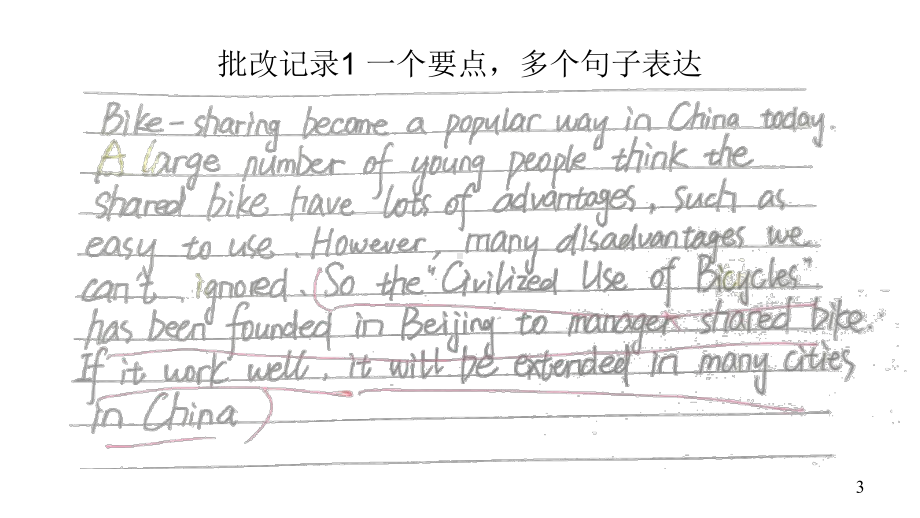 批改记录1 一个要点，多个句子表达
Bike-sharing become a popular way in China today.
A large number of young people think the
shared bike have lots of advantages, such as
easy to use. However, many disadvantages we
can't ignored. So the "Civilized Use of Bicycles"
has been founded in Beijing to manager shared bike.
If it work well, it will be extended in many cities
in China
3